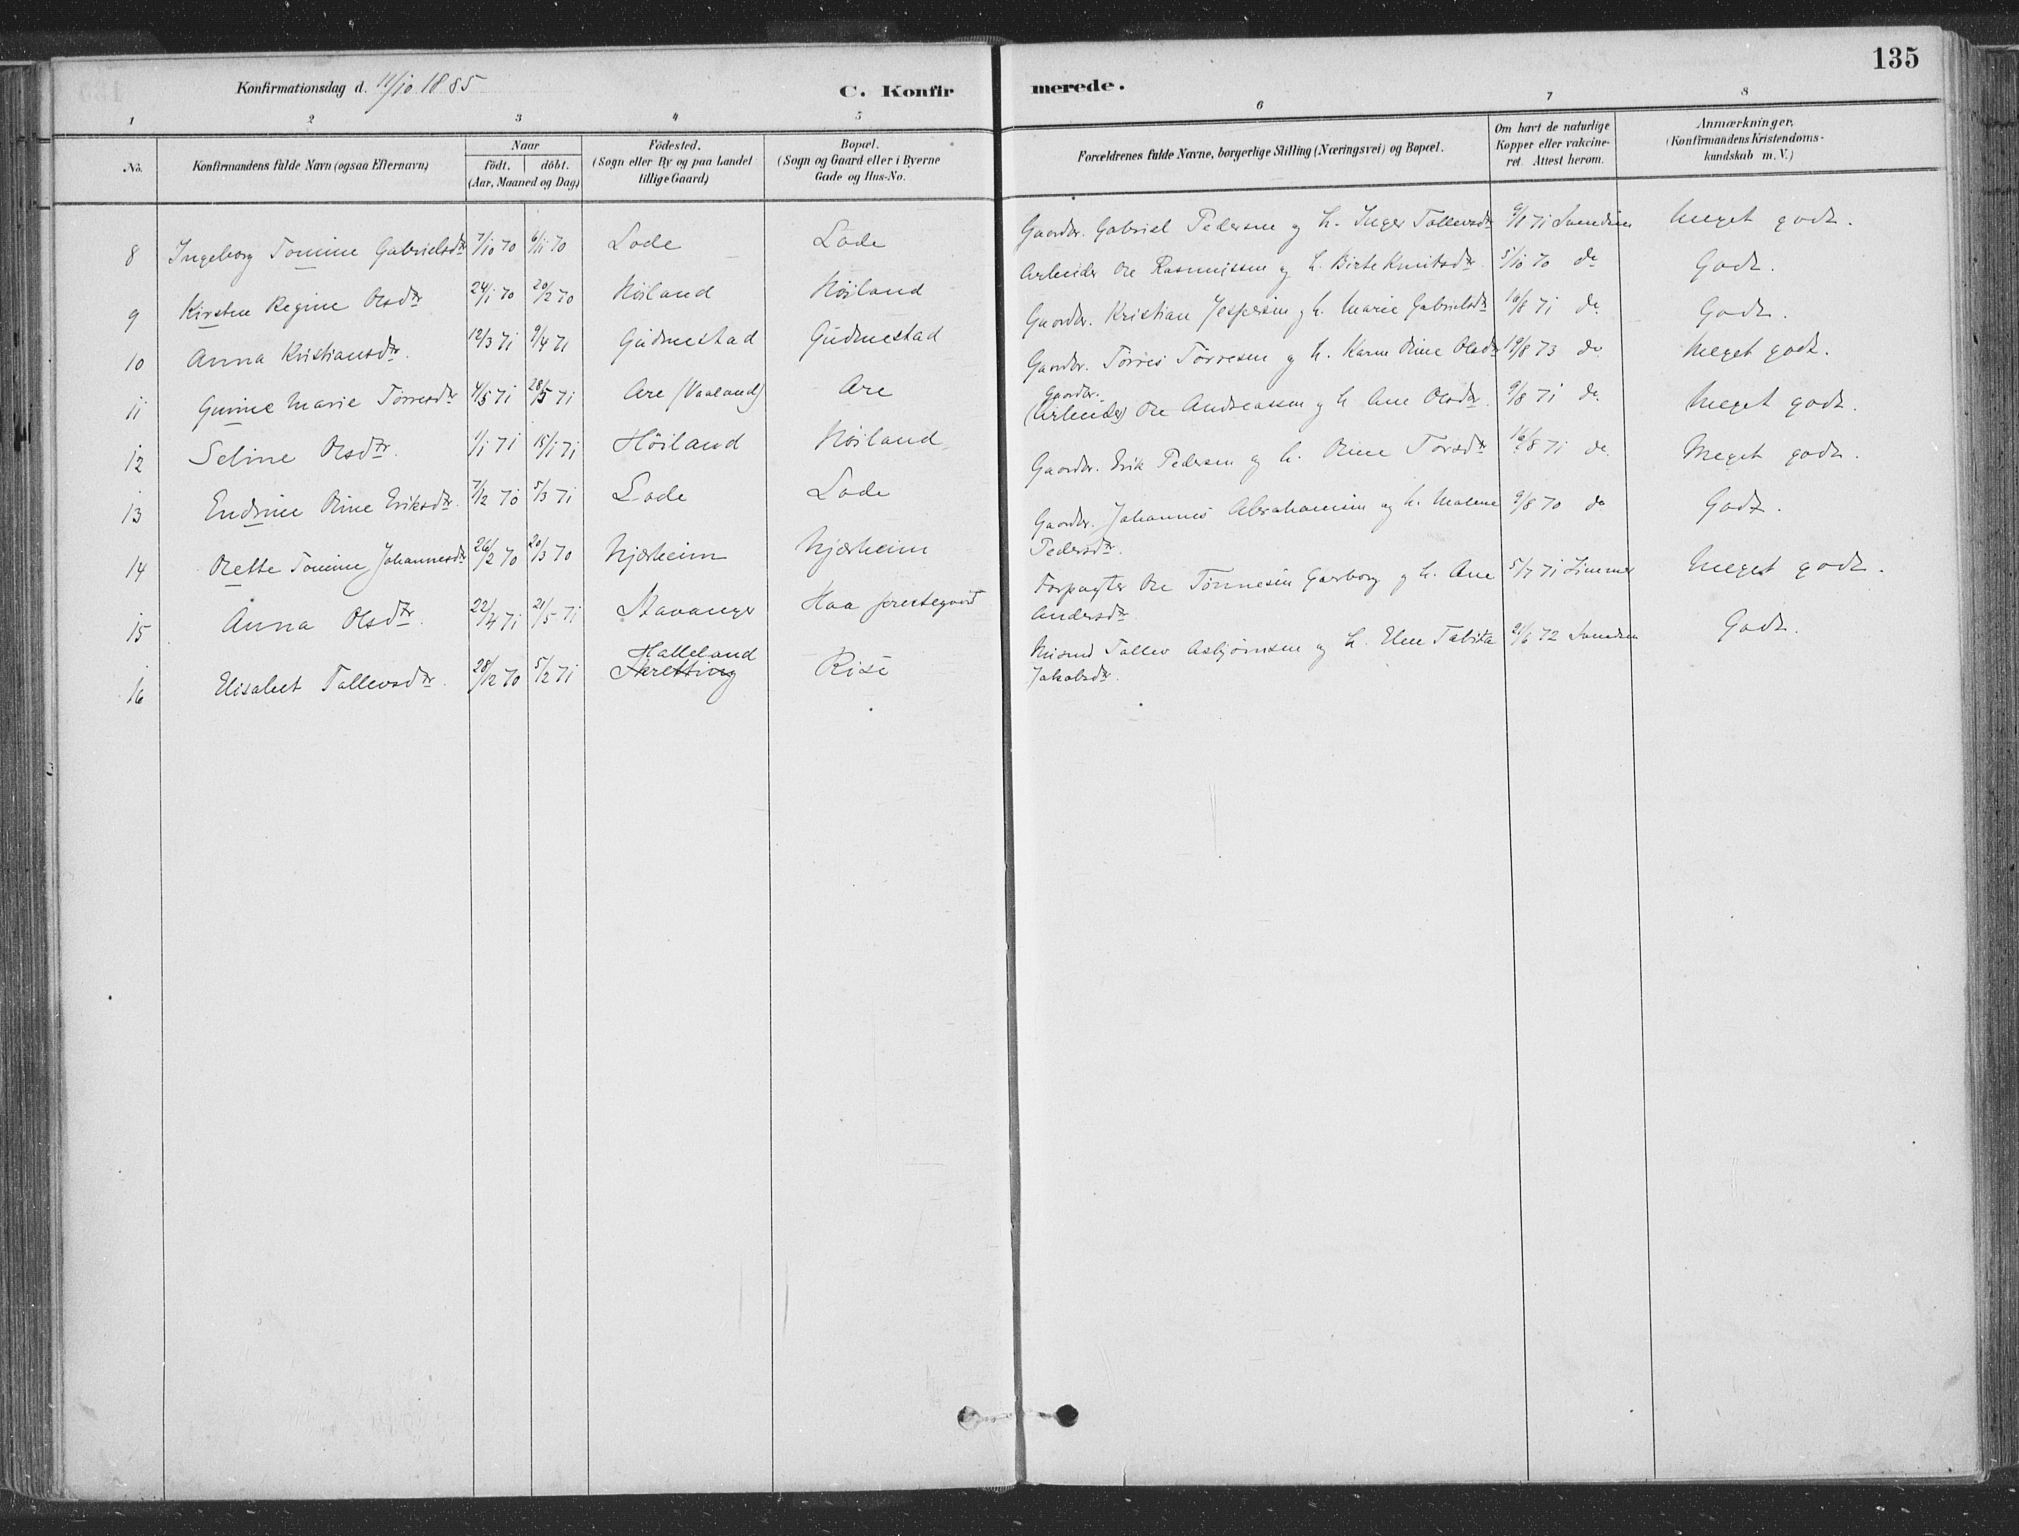 135
Konfirmationsdag d. 11/10 1885
C. Konfirmerede.
1 2 3 4 5 6 7 8
No. Konfirmandens fulde Navn (ogsaa Efternavn) Naar födt. döbt. (Aar, Maaned og Dag) Födested. (Sogn eller By og paa Landet tillige Gaard) Bopæl. (Sogn og Gaard eller i Byerne Gade og Hus-No. Forældrenes fulde Navne, borgerlige Stilling (Næringsvei) og Bopæl. Om havt de naturlige Kopper eller vakcineret. Attest herom. Anmærkninger. (Konfirmandens Kristendomskundskab m. V.)
8 Ingeborg Tomine Gabrielsdtr 7/10 70 6/11 70 Lode Lode Gaardbr. Gabriel Pedersen og h. Inger Tollevsdtr 9/1 71 Svendsen Meget godt.
9 Kirsten Regine Olsdtr 24/1 70 20/2 70 Höiland Höiland Arbeider Ole Rasmussen og h. Birte Knutsdtr. 5/10 70 do Godt.
10 Anna Kristiansdtr. 12/3 71 9/4 71 Gudmestad Gudmestad Gaardbr. Kristian Jespersen og h. Marie Gabrielsdtr 16/8 71 do Godt.
11 Gurine Marie Törresdtr 4/5 71 28/5 71 Are (Vaaland) Are Gaardbr. Törres Törresen og h. Karen Oline Olsdtr 19/8 73 do Meget godt.
12 Seline Olsdtr. 1/1 71 15/1 71 Höiland Höiland Gaardbr. (Arbeider) Ole Andreassen og h Ane Olsdtr. 9/8 71 do Meget godt.
13 Endrine Oline Eriksdtr. 7/12 70 5/3 71 Lode Lode Gaardbr. Erik Pedersen og h. Oline Torsdtr 16/8 71 do. Meget godt.
14 Olette Tomine Johannesdtr 26/2 70 20/3 70 Njærheim Njærheim Gaardbr. Johannes Abrahamsen og h. Malene Pedersdtr. 9/8 70 do Godt.
15 Anna Olsdtr. 22/4 71 21/5 71 Stavanger Haa prestegaard Forpagter Ole Tönnesen Garborg og h. Ane Andersdtr. 5/7 71 Zimmer Meget godt.
16 Elisabet Tollevsdtr. 28/12 70 5/2 71 Halleland Skretting Rise Tollev Asbjörnsen og h. Elen Tabita Jakobsdtr. 21/6 72 Svendsen Godt.